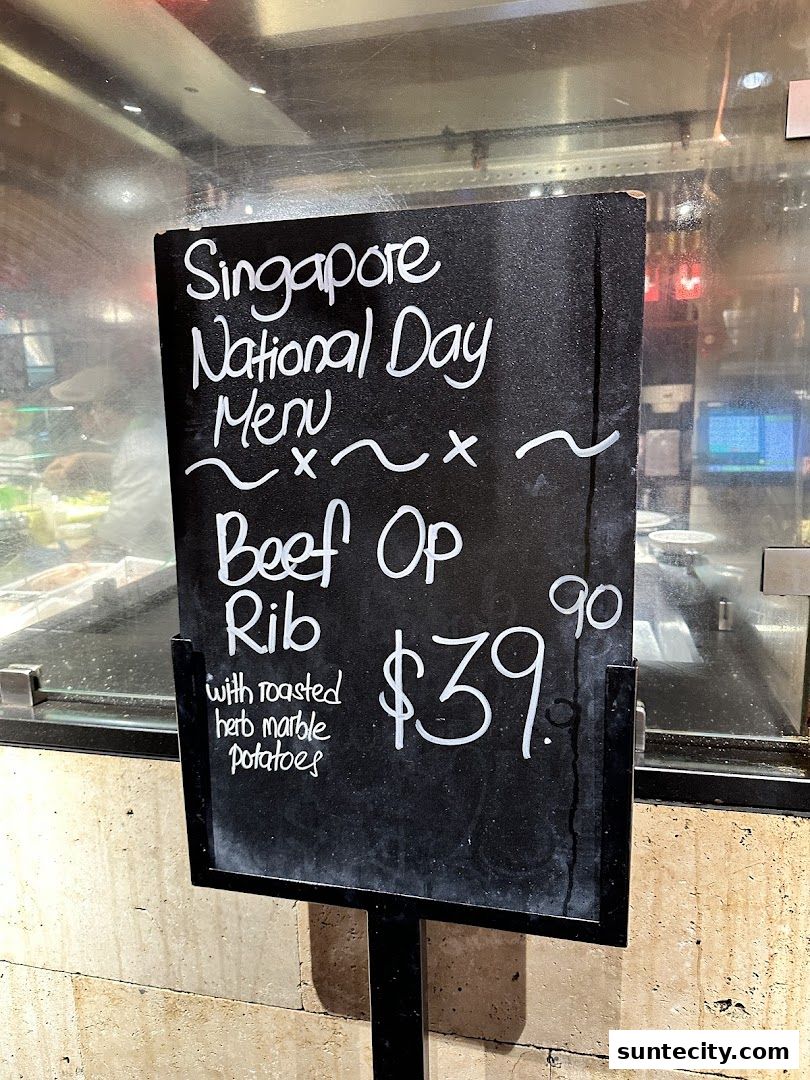 Singapore
National Day
Menu
~ x ~ x ~
Beef Op
Rib
with roasted
herb marble
potatoes
$39.90
suntecity.com